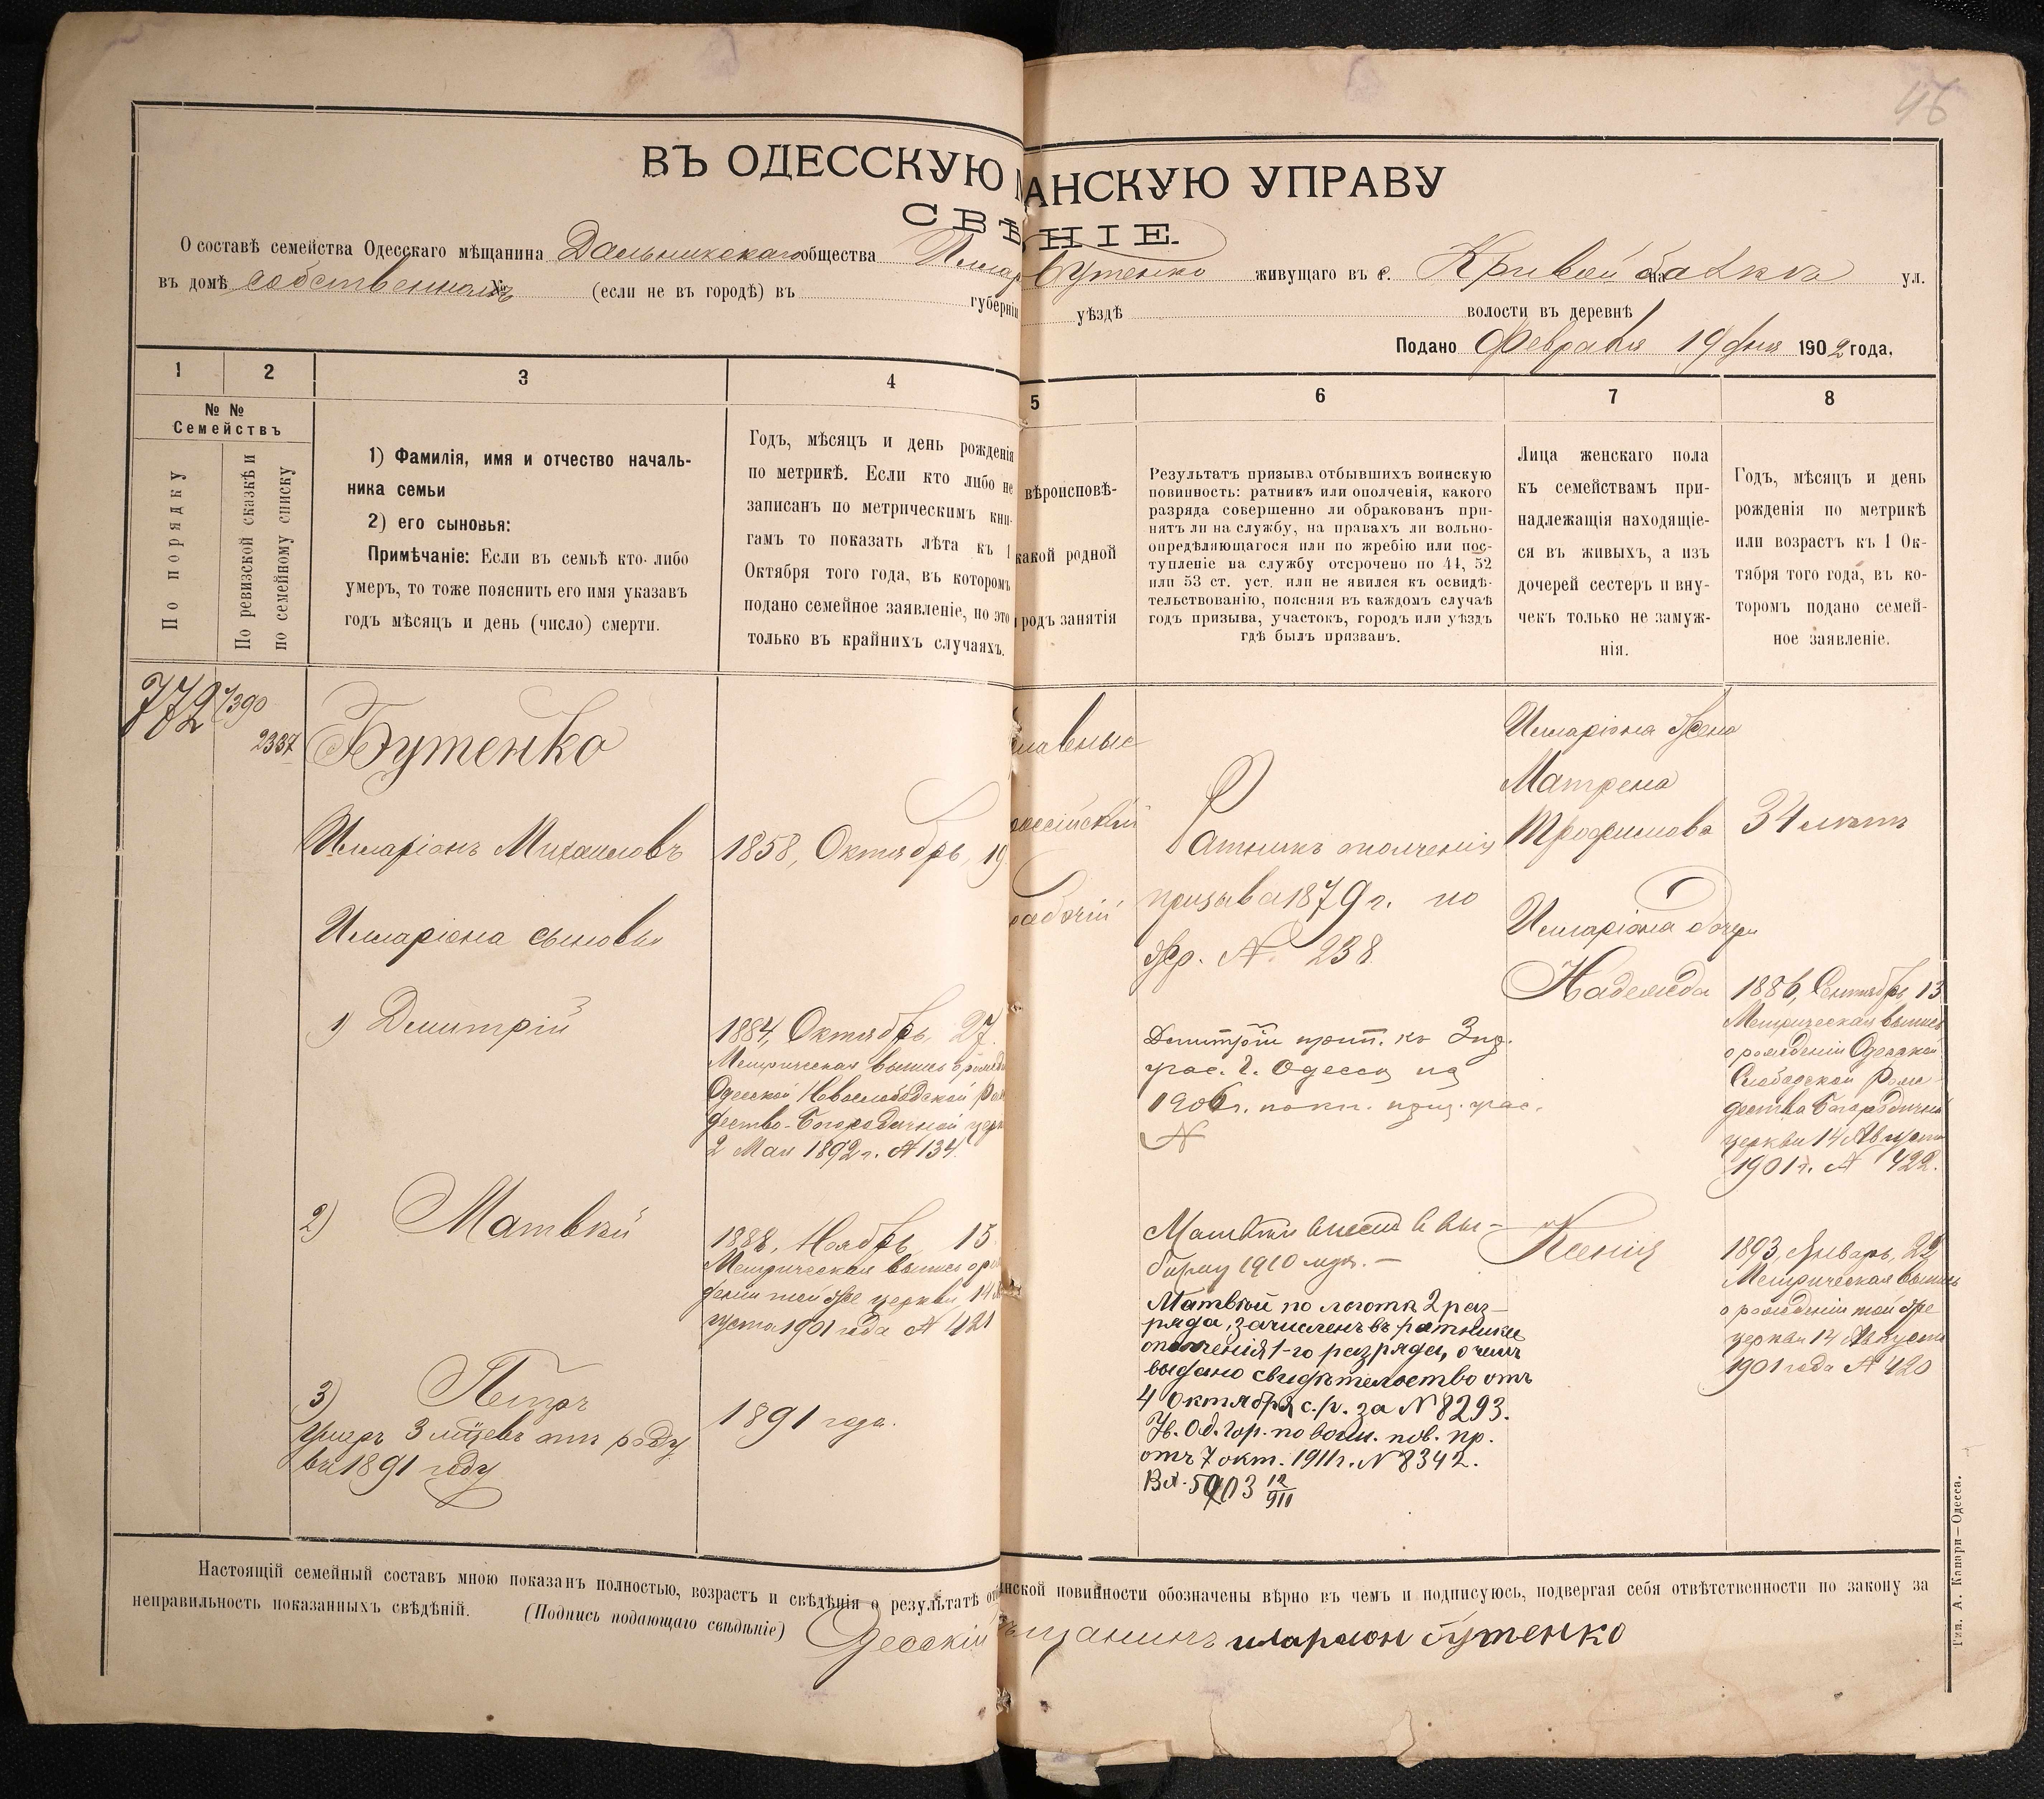 46
ВЪ ОДЕССКУЮ МАНСКУЮ УПРАВУ
СВѢНІЕ.
О составѣ семейства Одесскаго мѣщанина Дальникскаго общества Илар Бутенко живущаго въ с. Кривой балкѣ на ул.
въ домѣ собственномъ № (если не въ городѣ) въ губерніи уѣздѣ волости въ деревнѣ
Подано Февраля 19 дня 1902 года,
1 2 3 4 5 6 7 8
№ №
Семействъ
По порядку
По ревизской сказкѣ и
по семейному списку
1) Фамилія, имя и отчество началь-
ника семьи
2) его сыновья:
Примѣчаніе: Если въ семьѣ кто-либо
умеръ, то тоже пояснить его имя указавъ
годъ мѣсяцъ и день (число) смерти.
Годъ, мѣсяцъ и день рожденія
по метрикѣ. Если кто либо не
записанъ по метрическимъ кни-
гамъ то показать лѣта къ 1
Октября того года, въ которомъ
подано семейное заявленіе, но это
только въ крайнихъ случаяхъ.
вѣроисповѣ-
какой родной
родъ занятія
Результатъ призыва отбывшихъ воинскую
повинность: ратникъ или ополченія, какого
разряда совершенно ли обракованъ при-
нятъ ли на службу, на правахъ ли вольно-
опредѣляющагося или по жребію или пос-
тупленіе на службу отсрочено по 44, 52
или 53 ст. уст. или не явился къ освидѣ-
тельствованію, поясняя въ каждомъ случаѣ
годъ призыва, участокъ, городъ или уѣздъ
гдѣ былъ призванъ.
Лица женскаго пола
къ семействамъ при-
надлежащія находящіе-
ся въ живыхъ, а изъ
дочерей сестеръ и вну-
чекъ только не замуж-
нія.
Годъ, мѣсяцъ и день
рожденія по метрикѣ
или возрастъ къ 1 Ок-
тября того года, въ ко-
торомъ подано семей-
ное заявленіе.
772
2337
Бутенко
Илларіонъ Михаиловъ
1858, Октябрь, 19
Илларіона сыновья
1) Дмитрій
1884, Октябрь, 27.
Метрическая выпись о рожде
Одесской Новослободской Рож
дество-Богородичной церк
2 Мая 1892 г. № 134.
2) Матвѣй
1888, Ноябрь 15
Метрическая выпись о рож
деніи той же церкви 14 Ав
густа 1901 года № 421
3) Петръ
умеръ 3 мцевъ отъ роду
въ 1891 году
1891 года.
славные
россійскій
рабочій
Ратникъ ополченія
призыва 1879 г. по
жер. № 238
Дмитрій прип. къ 3 пр.
учас. г. Одессы на
1906 г.
№
Матвѣй внесенъ въ вы-
борку 1910 года. –
Матвѣй по льготѣ 2 раз-
ряда, зачисленъ въ ратники
ополченія 1-го разряда, о чемъ
выдано свидѣтельство отъ
4 октября с./г. за № 8293.
Ув. Од. Гор. по воин. пов. пр.
отъ 7 окт. 1911 г. № 8342.
Вх. 5903 12/911
Илларіона жена
Матрена
Трофимова
34 лѣтъ
Илларіона дочери
Надежда
1886, Сентябрь 13
Метрическая выпись
о рожденіи Одесской
Слободской Рож-
дества Богородичной
церкви 14 Августа
1901 г. № 422.
Ксенія
1893, Январь, 22
Метрическая выпись
о рожденіи той же
церкви 14 Августа
1901 года № 420
Настоящій семейный составъ мною показанъ полностью, возрастъ и свѣдѣнія о результатѣ от инской повинности обозначены вѣрно въ чемъ и подписуюсь, подвергая себя отвѣтственности по закону за
неправильность показанныхъ свѣдѣній. (Подпись подающаго свѣдѣніе) Одесскій мѣщанинъ иларион бутенко
Тип. А. Капари—Одесса.